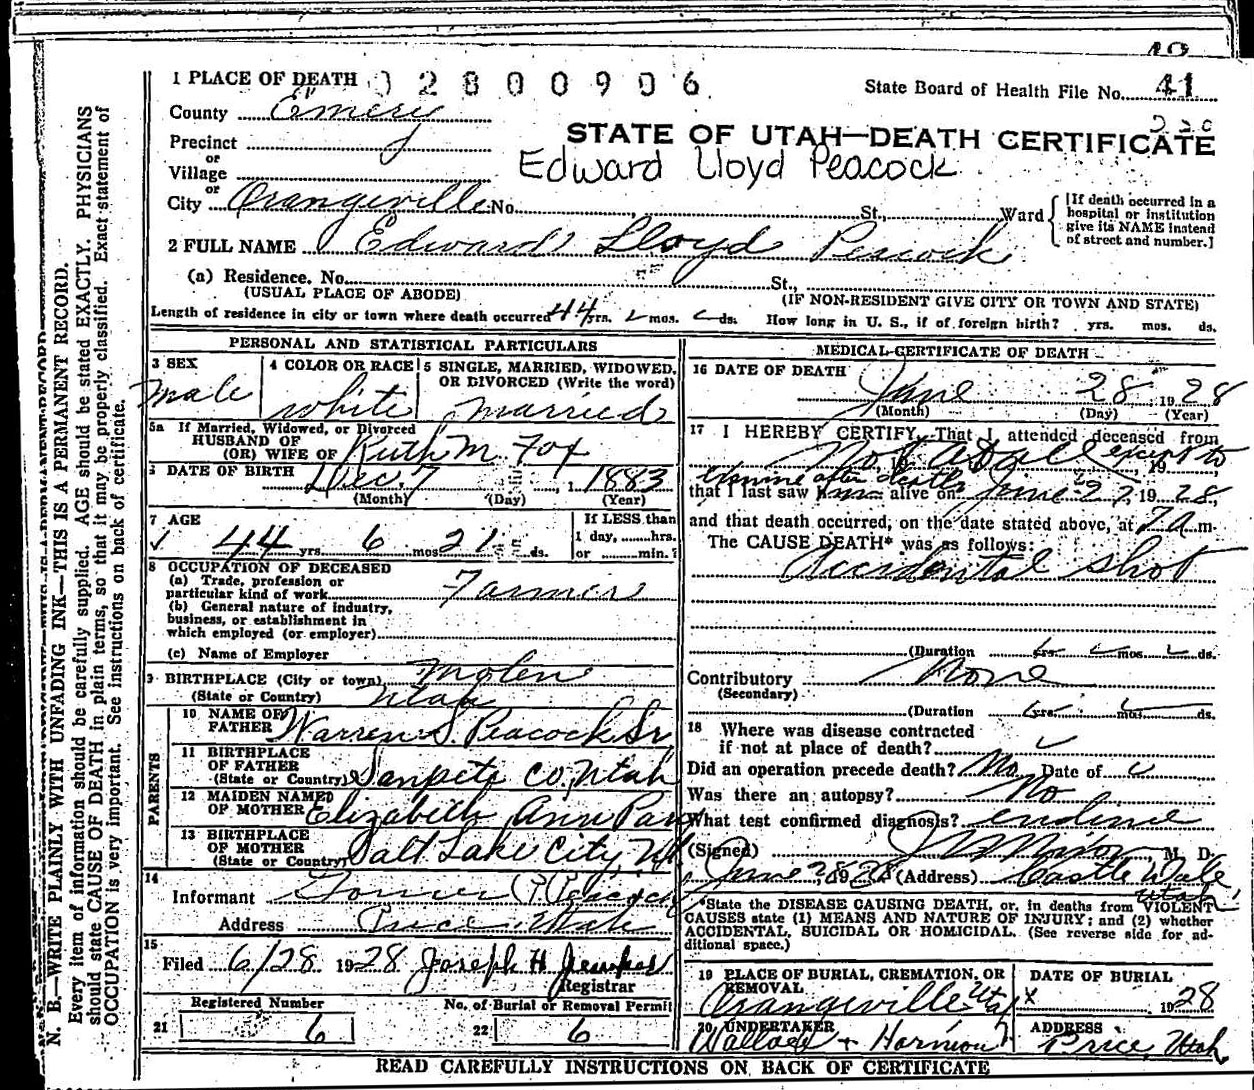 1 PLACE OF DEATH 02800906
State Board of Health File No. 41
County Emery
220
STATE OF UTAH—DEATH CERTIFICATE
Precinct
or
Village
Edward Lloyd Peacock
or
City Orangeville No. St., Ward
[If death occurred in a
hospital or institution
give its NAME instead
of street and number.]
2 FULL NAME Edward Lloyd Peacock
(a) Residence. No. St.,
(USUAL PLACE OF ABODE) (IF NON-RESIDENT GIVE CITY OR TOWN AND STATE)
Length of residence in city or town where death occurred 44 yrs. mos. ds. How long in U. S., if of foreign birth? yrs. mos. ds.
PERSONAL AND STATISTICAL PARTICULARS
3 SEX
male
4 COLOR OR RACE
white
5 SINGLE, MARRIED, WIDOWED,
OR DIVORCED (Write the word)
married
5a If Married, Widowed, or Divorced
HUSBAND OF
(OR) WIFE OF Ruth M. Fox
6 DATE OF BIRTH Dec. 7 1883
(Month) (Day) (Year)
7 AGE
44 yrs. 6 mos 21 ds.
If LESS than
1 day, hrs.
or min.?
8 OCCUPATION OF DECEASED
(a) Trade, profession or
particular kind of work Farmer
(b) General nature of industry,
business, or establishment in
which employed (or employer)
(c) Name of Employer
9 BIRTHPLACE (City or town) Molen
(State or Country) Utah
PARENTS
10 NAME OF
FATHER Warren S. Peacock Sr
11 BIRTHPLACE
OF FATHER
(State or Country) Sanpete Co, Utah
12 MAIDEN NAME
OF MOTHER Elizabeth Ann
13 BIRTHPLACE
OF MOTHER
(State or Country) Salt Lake City, Ut
14
Informant P. Peacock
Address Price, Utah
15
Filed 6/28 1928 Joseph H
Registrar
Registered Number
21 6
No. of Burial or Removal Permit
22 6
MEDICAL CERTIFICATE OF DEATH
16 DATE OF DEATH
June 28 1928
(Month) (Day) (Year)
17 I HEREBY CERTIFY, That I attended deceased from
Not at all except to
examine after death
that I last saw him alive on June 27, 1928
and that death occurred, on the date stated above, at 7 a m.
The CAUSE DEATH* was as follows:
Accidental shot
(Duration yrs. mos. ds.
Contributory None
(Secondary)
(Duration yrs. mos. ds.
18 Where was disease contracted
if not at place of death?
Did an operation precede death? No Date of
Was there an autopsy? No
What test confirmed diagnosis? evidence
(Signed) M. D.
June 28, 1928 (Address) Castle Dale
Utah
*State the DISEASE CAUSING DEATH, or, in deaths from VIOLENT
CAUSES state (1) MEANS AND NATURE OF INJURY; and (2) whether
ACCIDENTAL, SUICIDAL OR HOMICIDAL. (See reverse side for ad-
ditional space.)
19 PLACE OF BURIAL, CREMATION, OR
REMOVAL
Orangeville Utah
DATE OF BURIAL
1928
20 UNDERTAKER
Wallace + Harmon
ADDRESS
Price, Utah
READ CAREFULLY INSTRUCTIONS ON BACK OF CERTIFICATE
N. B.—WRITE PLAINLY WITH UNFADING INK—THIS IS A PERMANENT RECORD.
Every item of information should be carefully supplied. AGE should be stated EXACTLY. PHYSICIANS
should state CAUSE OF DEATH in plain terms, so that it may be properly classified. Exact statement of
OCCUPATION is very important. See instructions on back of certificate.